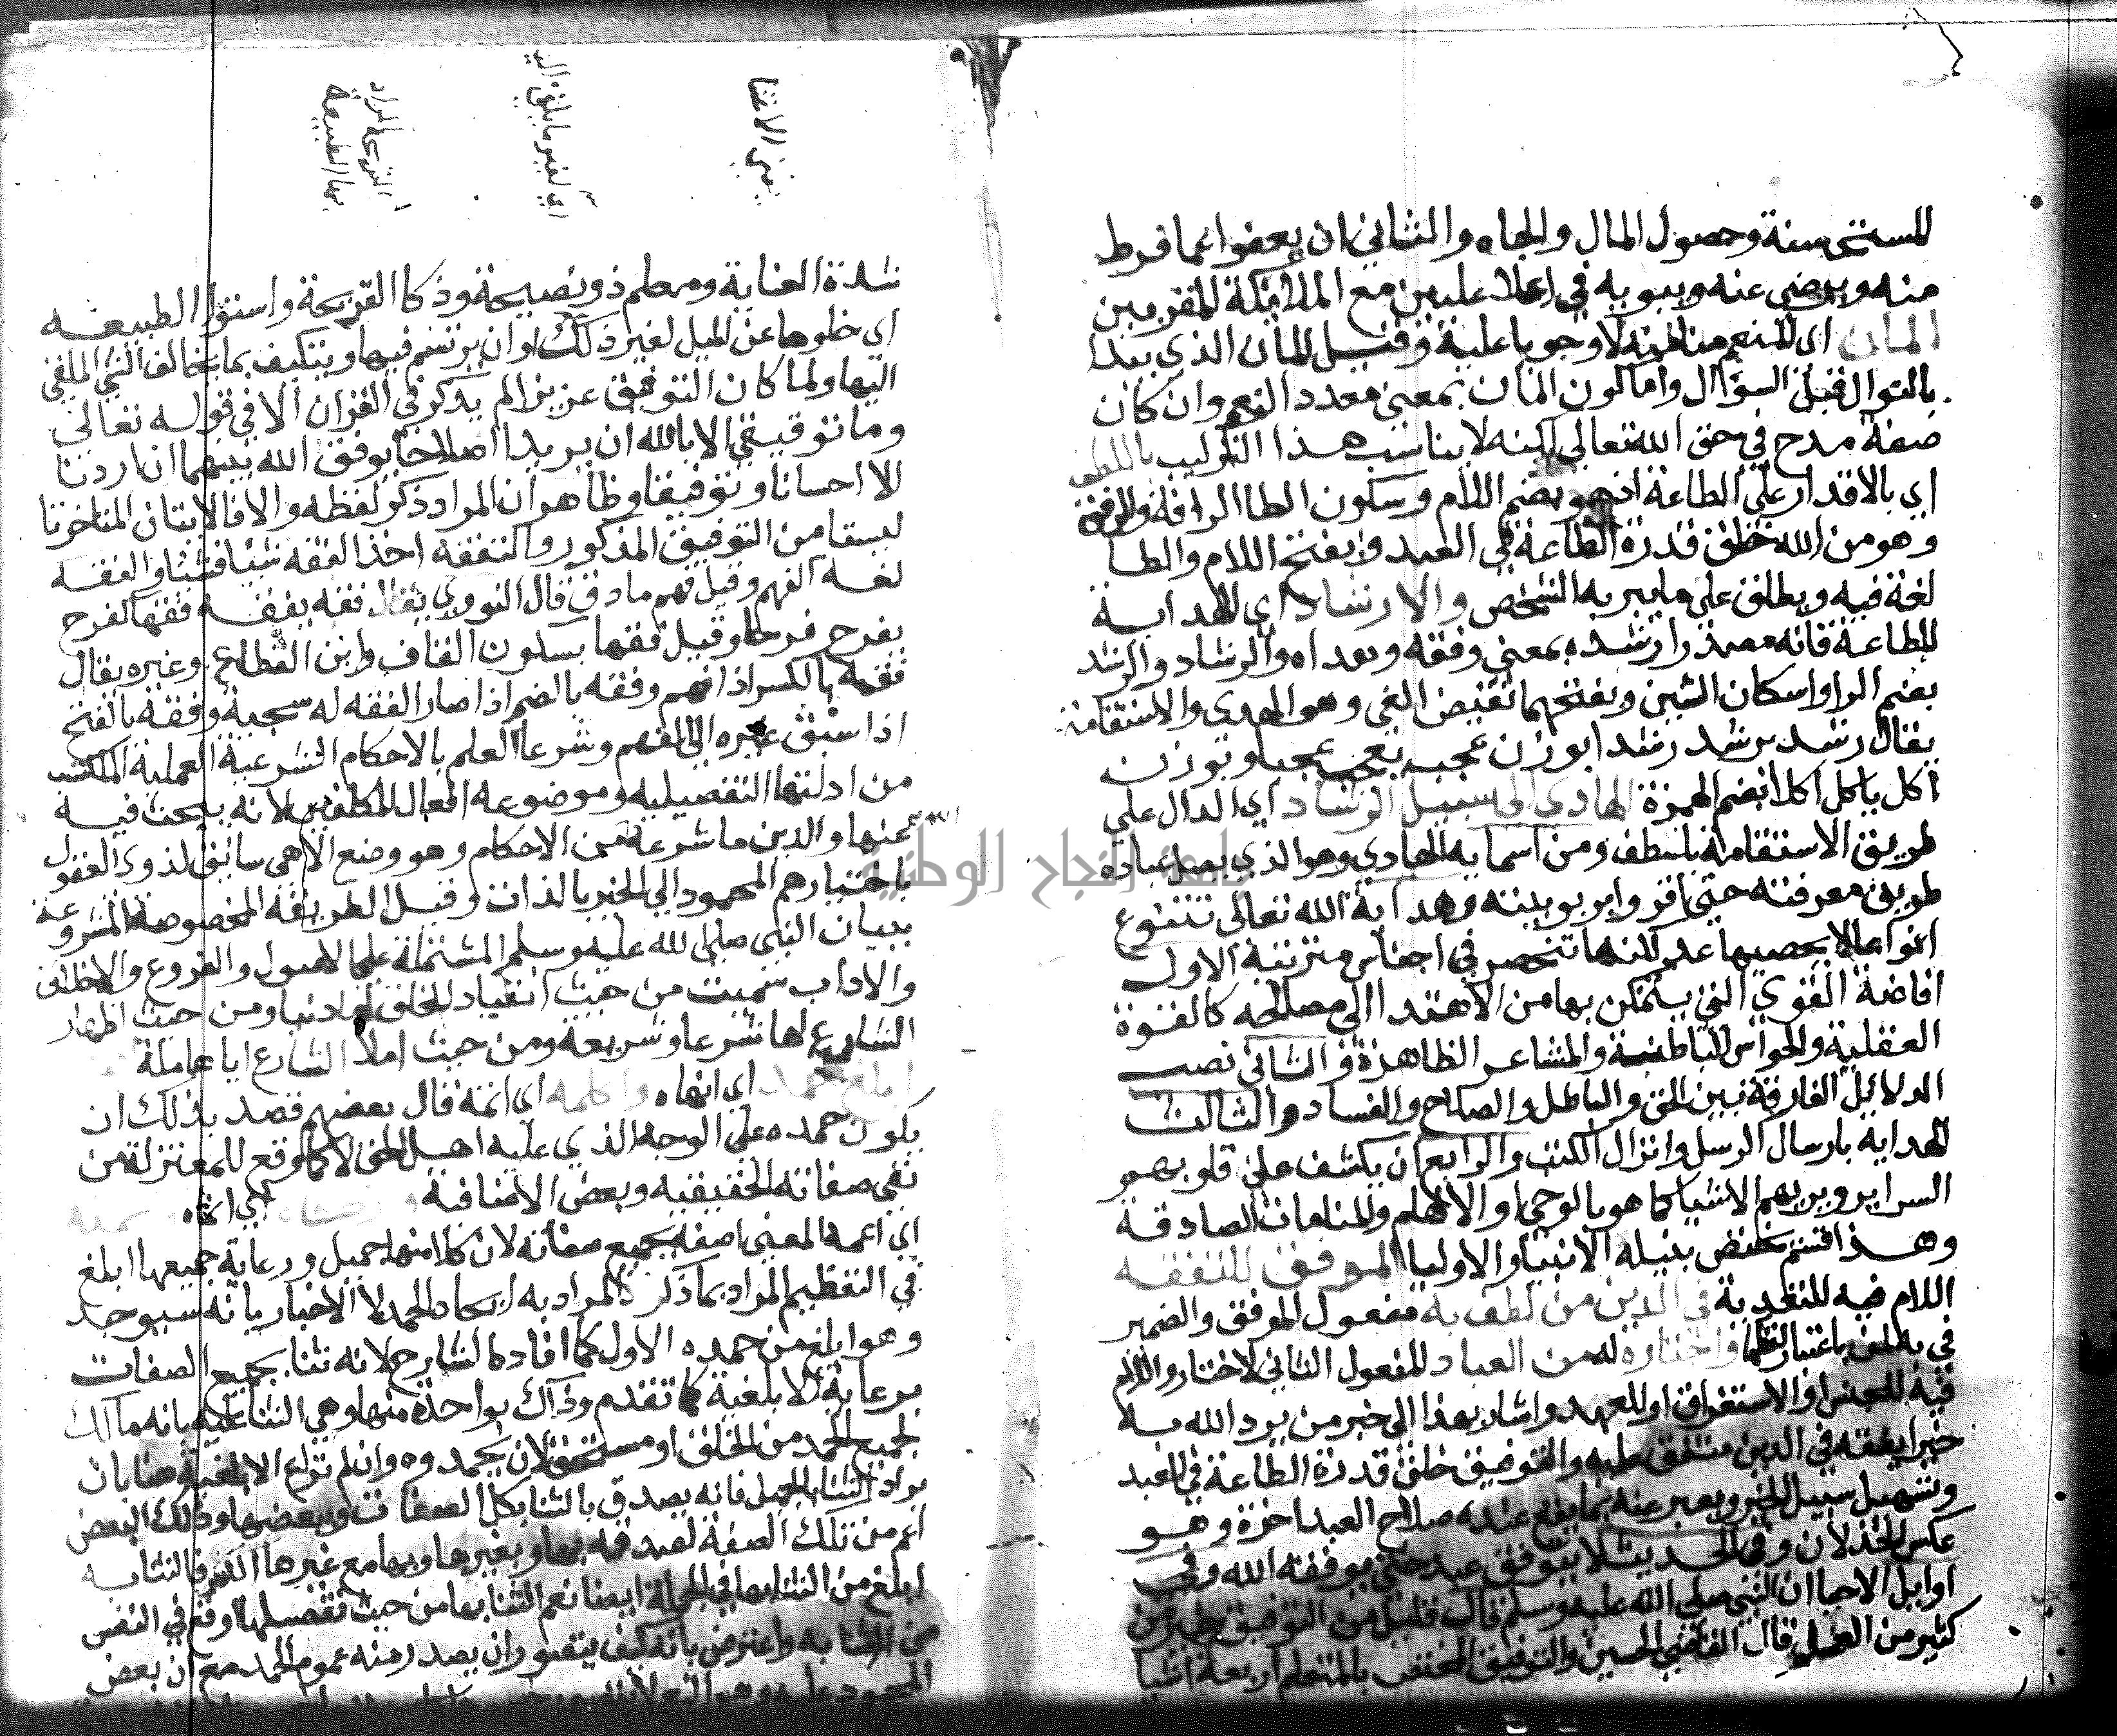 للمستحسنة وحصول المال والجاه والثاني ان يعفوا عما فرط
منه ويرضى عنه ويبويه في اعلا عليين مع الملائكة المقربين
المنان اي المنعم منا منه لا وجوبا عليه وقيل المنان الذي يبدا
بالنوال قبل السؤال واما كون المنان بمعنى معدد النعم وان كان
صفة مدح في حق الله تعالى لكنه لا يناسب هذا التركيب باللطف
اي بالاقدار على الطاعة اذ هو بضم اللام وسكون الطا الرافة والرفق
وهو من الله خلق قدرة الطاعة في العبد وبفتح اللام والطا
لغة فيه ويطلق على ما يبر به الشخص والارشاد اي الهداية
للطاعة فانه مصدر ارشده بمعنى وفقه وهداه والرشاد والرشد
بضم الرا واسكان الشين وبفتحهما نقيض الغي وهو الهدى والاستقامة
يقال رشد يرشد رشدا بوزن عجب يعجب عجبا وبوزن
اكل ياكل اكلا بضم الهمزة الهادي الى سبيل الرشاد اي الدال على
طريق الاستقامة بلطف ومن اسمايه الهادي وهو الذي بصر عباده
طريق معرفته حتى اقروا بربوبيته وهداية الله تعالى تتنوع
انواعا لا يحصيها عد لكنها تنحصر في اجناس مترتبة الاول
افاضة القوى التي يتمكن بها من الاهتدا الى مصالحه كالقوة
العقلية والحواس الباطنة والمشاعر الظاهرة والثاني نصب
الدلائل الفارقة بين الحق والباطل والصلاح والفساد والثالث
الهداية بارسال الرسل وانزال الكتب والرابع ان يكشف على قلوبهم
السراير ويريهم الاشيا كما هو بالوحي او الالهام والمنامات الصادقة
وهذا قسم يختص بنيله الانبيا والاوليا الموفق للتفقه
اللام فيه للتعدية في الدين من لطف به مفعول الموفق والضمير
في به لمن باعتبار لفظها واختاره له من العباد المفعول الثاني لاختار واللام
فيه للجنس او الاستغراق او للعهد واشار بهذا الى خبر من يرد الله به
خيرا يفقهه في الدين متفق عليه والتوفيق خلق قدرة الطاعة في العبد
وتسهيل سبيل الخير ويعبر عنه بما يقع عنده صلاح العبد اخرة وهو
عكس الخذلان وفي الحديث لا يتوفق عبد حتى يوفقه الله وفي
اوايل الاحيا ان النبي صلى الله عليه وسلم قال قليل من التوفيق خير من
كثير من العمل قال القاضي الحسين والتوفيق المختص بالمتعلم اربعة اشيا
شدة العناية ومعلم ذو نصيحة وذكا القريحة واستوا الطبيعه
اي خلوها عن الميل لغير ذلك او ان يرتسم فيها ويتكيف بما يخالف الشي الملقي
اليها ولما كان التوفيق عزيزا لم يذكر في القران الا في قوله تعالى
وما توفيقي الا بالله ان يريدا اصلاحا يوفق الله بينهما ان اردنا
الا احسانا وتوفيقا وظاهر ان المراد ذكر لفظه والا فالايتان المتاخرتا
ليستا من التوفيق المذكور والتفقه اخذ الفقه شيئا فشيئا والفقه
لغة الفهم وقيل فهم ما دق قال النووي يقال فقه يفقه فقها كفرح
يفرح فرحا وقيل فقها بسكون القاف وابن القطاع وغيره يقال
فقه بالكسر اذا فهم وفقه بالضم اذا صار الفقه له سجية وفقه بالفتح
اذا سبق غيره الى الفهم وشرعا العلم بالاحكام الشرعية العملية المكتسب
من ادلتها التفصيليه وموضوعه افعال المكلفين لانه يبحث فيه
عنها والدين ما شرعه من الاحكام وهو وضع الاهي سائق لذوي العقول
باختيارهم المحمود الى الخير بالذات وقيل الطريقة المخصوصة المشروعة
ببيان النبي صلى الله عليه وسلم المشتملة على الاصول والفروع والاخلاق
والاداب سميت من حيث انقياد الخلق لها دينا ومن حيث اظهار
الشارع لها شرعا وشريعة ومن حيث املا الشارع اياها ملة
ابلغ حمد اي انهاه واكمله اي اتمه قال بعضهم قصد بذلك ان
يكون حمده على الوجه الذي عليه اهل الحق لا كما وقع للمعتزلة من
نفي صفاته الحقيقيه وبعض الاضافية
اي اعم المعنى اصفه بجميع صفاته لان كلا منها جميل ورعاية جميعها ابلغ
في التعظيم المراد بما ذكر اذ المراد به ايجاد الحمد لا الاخبار بانه سيوجد
وهو ابلغ من حمده الاول كما افاده الشارح لانه ثنا بجميع الصفات
برعاية الابلغية كما تقدم وذاك بواحدة منها وهي الثنا عليه بانه مالك
لجميع الحمد من الخلق او مستحق لان يحمدوه وان لم تراع الابلغية هنا بان
يراد الثنا بالجميل فانه يصدق بالثنا بكل الصفات وببعضها وذلك البعض
اعم من تلك الصفة لصدقه بها وبغيرها وبها مع غيرها الكثير فالثنا به
ابلغ من الثنا بها في الجملة ايضا نعم الثنا بها من حيث تفصيلها اوقع في النفس
من الثنا به واعترض بانه كيف يتصور ان يصدر منه عموم الحمد مع ان بعض